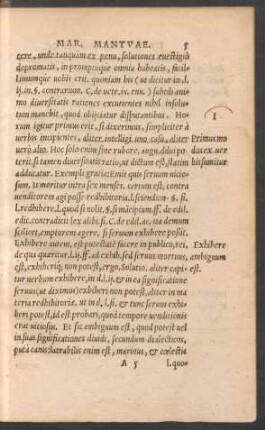 MAR. MANTVAE. 5
cere, unde tanquàm ex penu, solutiones euestigio
depromatis, in promptuque omnia habeatis, facil-
limumque uobis erit, quoniam bis (ut dicitur in.l.
ij.in.§. contrarium. C. de uete.iu. enu.) subtili ani-
mo diuersitatis rationes excutientes nihil insolu-
tum manebit, quod obijciatur disputantibus. Ho-
rum igitur primus erit, si dixerimus, simpliciter à
uerbis incipientes, aliter intelligi uno casu, aliter
uerò alio. Hoc solo enim sine rubore, angu. dilui po-
terit, si tamen diuersitatis ratio, ut dictum est, statim
adducatur. Exempli gratia: Emit quis seruum uicio-
sum, is moritur intra sex menses, certum est, contra
uenditorem agi posse redhibitoria.l. sciendum. §. fi.
l. redhibere.l. quod si nolit. §. si mācipium. ff. de edil.
edic. contradicit lex dibi. fi. C. de edil. ac. ita demum
scilicet, emptorem agere, si seruum exhibere possit.
Exhibere autem, est potestatē facere in publico, rei,
de qua queritur.l. ij. ff. ad exhib. sed seruus mortuus,
est, exhiberiq; non potest, ergo, Solutio. aliter capi-
tur uerbum exhibere, in d.l. ij. & in ea significatione
seruus (ut diximus) exhiberi non potest, aliter in ma
teria redhibitoriæ. ut in d.l. fi. & tunc seruus exhi-
beri potest, id est probari, quod tempore uenditionis
erat uitiosus. Et sic ambiguum est, quod potest uel
in suas significationes diuidi, secundum dialecticos,
put à canis: latrabilis enim est, marinus, & cœlestis
A 5 l. quo-
1
Primus mo
dus ex uer
bis sumitur
Exhibere
ambiguum
est.